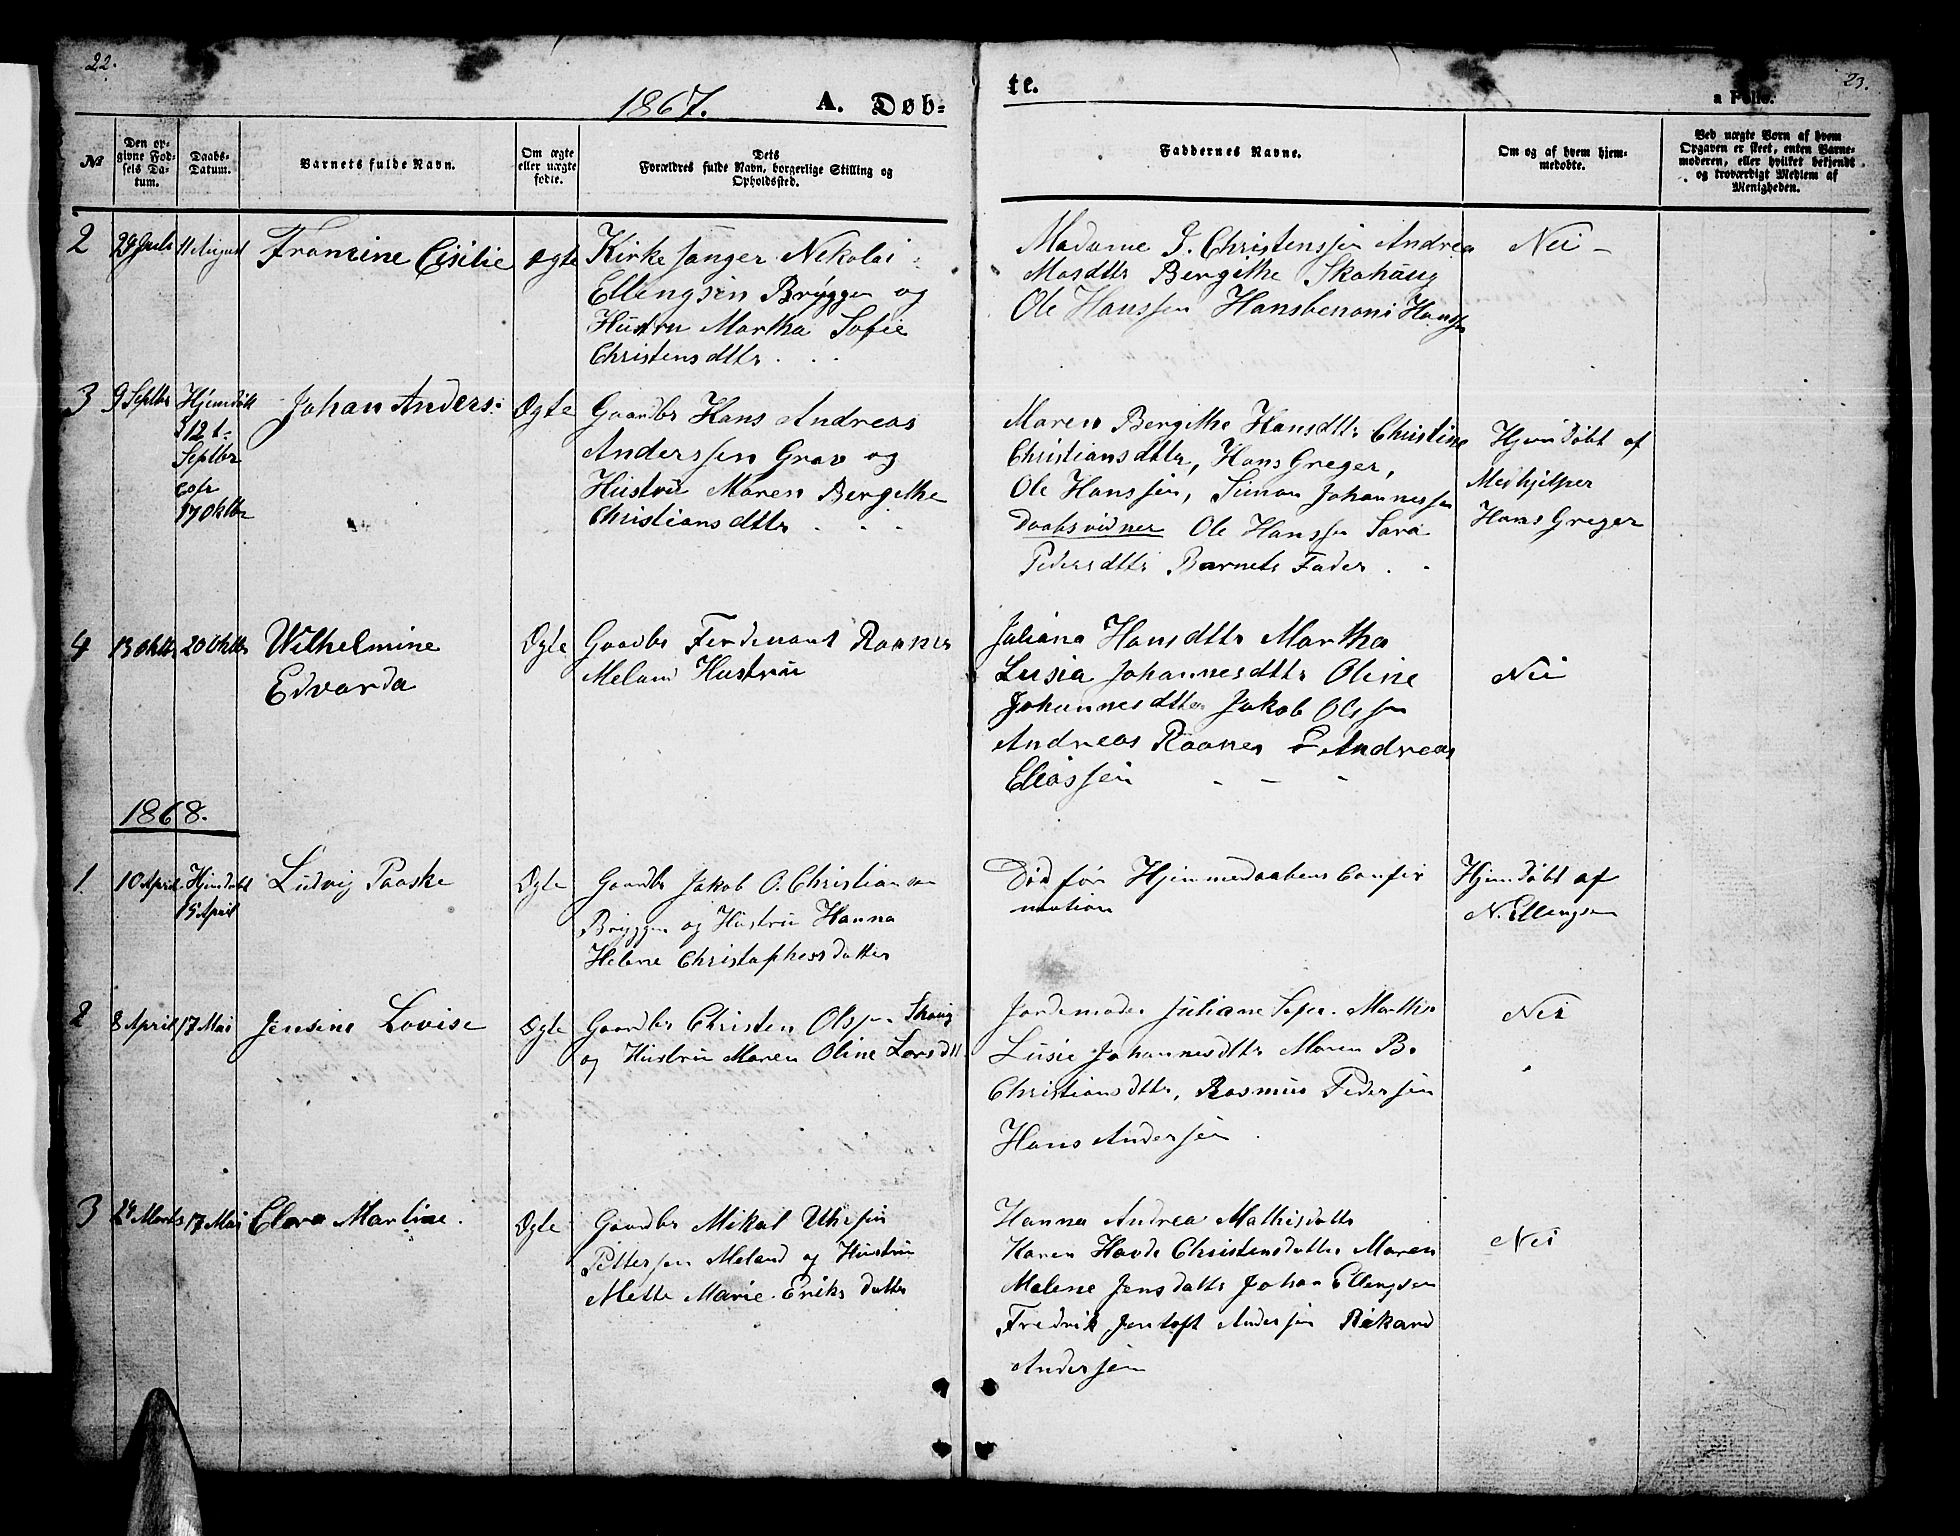 22.
23.
1867.
A. Døb-
te.
a Folio.
No
Den op-
givne Fød-
sels Da-
tum.
Daabs-
Datum.
Barnets fulde Navn.
Om ægte
eller uægte
fødte.
Dets
Forældres fulde Navn, borgerlige Stilling og
Opholdssted.
Faddernes Navne.
Om og af hvem hjem-
medøbte.
Ved uægte Børn af hvem
Opgaven er skeet, enten Barne-
moderen, eller hvilket bekjendt
og troværdigt Medlem af
Menigheden.
2
29 Juli
11 August
Francine Cisilie
Ægte
Kirkesanger Nikolai
Ellingsen Bryggen og
Hustru Martha Sofie
Christensdttr
Madame J. Christenssen Andrea
Masdttr Bergithe Skohaug
Ole Hanssen Hansbenoni Hanssen
Nei -
3
9 Septbr
Hjemdøbt
d 12te
Septbr
cofr
17 Oktbr
Johan Anders:
Ægte
Gaardbr Hans Andreas
Anderssen Grav og
Hustru Maren Bergithe
Christiansdttr
Maren Bergithe Hansdttr Christine
Christiansdttr, Hans Greger,
Ole Hanssen, Simon Johannessen
Daabsvidner Ole Hanssen Sara
Pedersdttr Barnets Fader
Hjemdøbt af
Medhjelper
Hans Greger
4
13 Oktbr
20 Oktbr
Wilhelmine
Edvarda
Ægte
Gaardbr Ferdenant Raanes
Meland Hustru
Juliana Hansdttr Martha
Lusia Johannesdttr Oline
Johannesdtter Jakob Olssen
Andreas Raanes & Andreas
Eliassen
Nei
1868.
1
10 April
Hjemdøbt
15 April
Ludvig Paaske
Ægte
Gaardbr Jakob O. Christiansen
Bryggen og Hustru Hanna
Helene Christophersdatter
Død før Hjemmedaabens Confir
mation
Hjemdøbt af
N. Ellingsen
2
8 April
17 Mai
Jensine Lovise
Ægte
Gaardbr Christen Olssen Skaug
og Hustru Maren Oline Larsdtt
Jordemoder Juliane Martha
Lusie Johannesdttr Maren B.
Christiansdttr, Rasmus Pedersen
Hans Andersen
Nei
3
24 Marts
17 Mai
Clara Martine.
Ægte
Gaardbr Mikal
Pettersen Meland og Hustru
Mette Marie Eriksdatter
Hanna Andrea Mathisdattr
Karen Havde Christensdatter Maren
Malene Jensdattr Johan Ellingsen
Fredrik Jentoft Andersen Rikard
Andersen
Nei